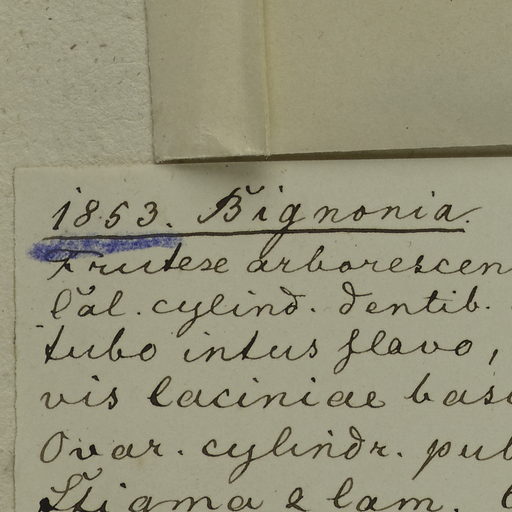 1853. Bignonia.
Frutese arborescen
Cal. cylind. dentib.
tubo intus flavo,
vis laciniae basi
Ovar. cylindr. pub
Stigma 2 lam.